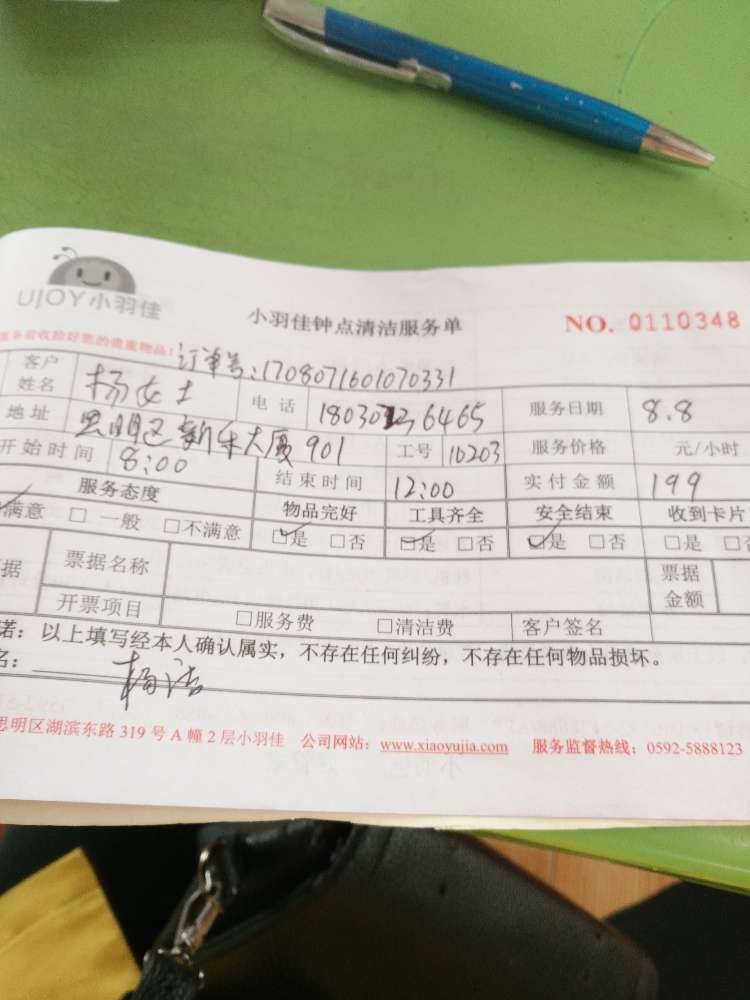 UJOY小羽佳
小羽佳钟点清洁服务单
NO. 0110348
服务后收拾好您的贵重物品!
订单号:1708071601070331
客户姓名 杨女士 电话 18030236465 服务日期 8.8
地址 思明区新乐大厦901 工号 10203 服务价格 元/小时
开始时间 8:00 结束时间 12:00 实付金额 199
服务态度 物品完好 工具齐全 安全结束 收到卡片
满意 □一般 □不满意 □是 □否 □是 □否 □是 □否 □是 □
据 票据名称 票据金额
开票项目 □服务费 □清洁费 客户签名
诺:以上填写经本人确认属实,不存在任何纠纷,不存在任何物品损坏。
名: 杨洁
思明区湖滨东路 319 号 A 幢 2 层小羽佳 公司网站:www.xiaoyujia.com 服务监督热线:0592-5888123